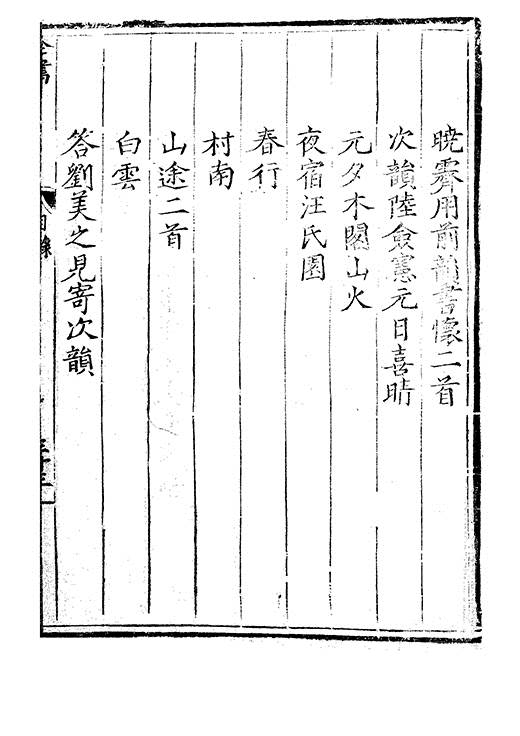 曉霽用前韻書懷二首
次韻陸僉憲元日喜晴
元夕木閣山火
夜宿汪氏園
春行
村南
山途二首
白雲
答劉美之見寄次韻
全書
目錄
三十三